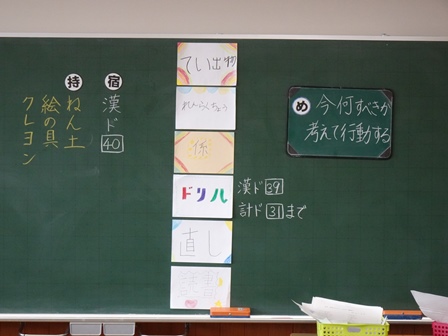 め 今何すべきか
考えて行動する
てい出物
れんらくちょう
係
ドリル
漢ド 39
計ド 31 まで
直し
読書
宿
漢ド 40
持
ねん土
絵の具
クレヨン